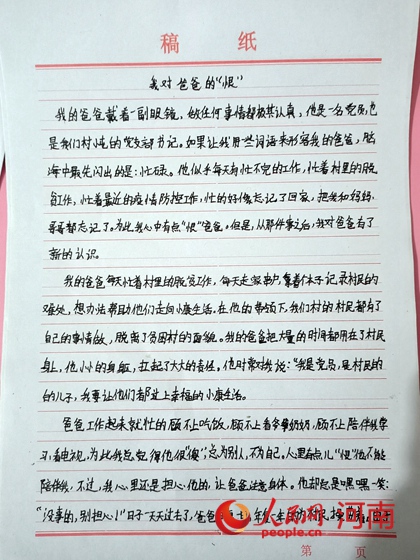 稿 纸
我对爸爸的“恨”
我的爸爸戴着一副眼镜，做任何事情都极其认真，他是一名党员，也
是我们村的党支部书记。如果让我用一些词语来形容我的爸爸，脑
海中最先闪出的是：忙碌。他似乎每天有忙不完的工作，忙着村里的脱
贫工作，忙着最近的疫情防控工作，忙的好像忘记了回家，把我和妈妈、
哥哥都忘记了。为此我心中有点“恨”爸爸。但是，从那件事之后，我对爸爸有了
新的认识。
我的爸爸每天忙着村里的脱贫工作，每天走家串户，拿着个本子记录村民的
难处，想办法帮助他们走向小康生活。在他的带领下，我们村的村民都有了
自己的事情做，脱离了贫困村的面貌。我的爸爸把大量的时间都用在了村民
身上，他小小的身躯，扛起了大大的责任。他时常对我说：“我是党员，是村民的
的儿子，我要让他们都过上幸福的小康生活。
爸爸工作起来就忙的顾不上吃饭，顾不上看爷爷奶奶，顾不上陪伴我学
习、看电视，为此我总觉得他很“傻”，总为别人，不为自己。心里有点儿“恨”他不能
陪伴我，不过，我心里还是担心他的，让爸爸注意身体。他却总是嘿嘿一笑：
“没事的，别担心！”日子一天天过去了，爸爸
人民网 河南
第 页